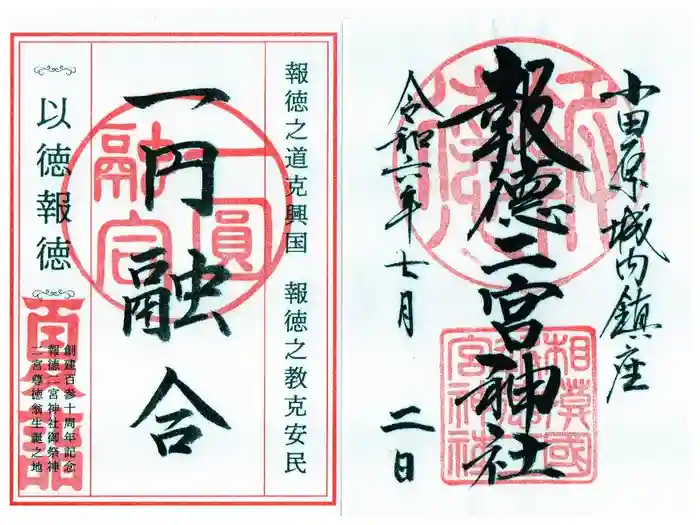 小田原城内鎮座
報徳二宮神社
令和六年七月二日
相模國
報徳二
宮神社
報徳之道克興国　報徳之教克安民
一円融合
一圓
融合
以徳報徳
創建百参十周年記念
報徳二宮神社御祭神
二宮尊徳翁生誕之地